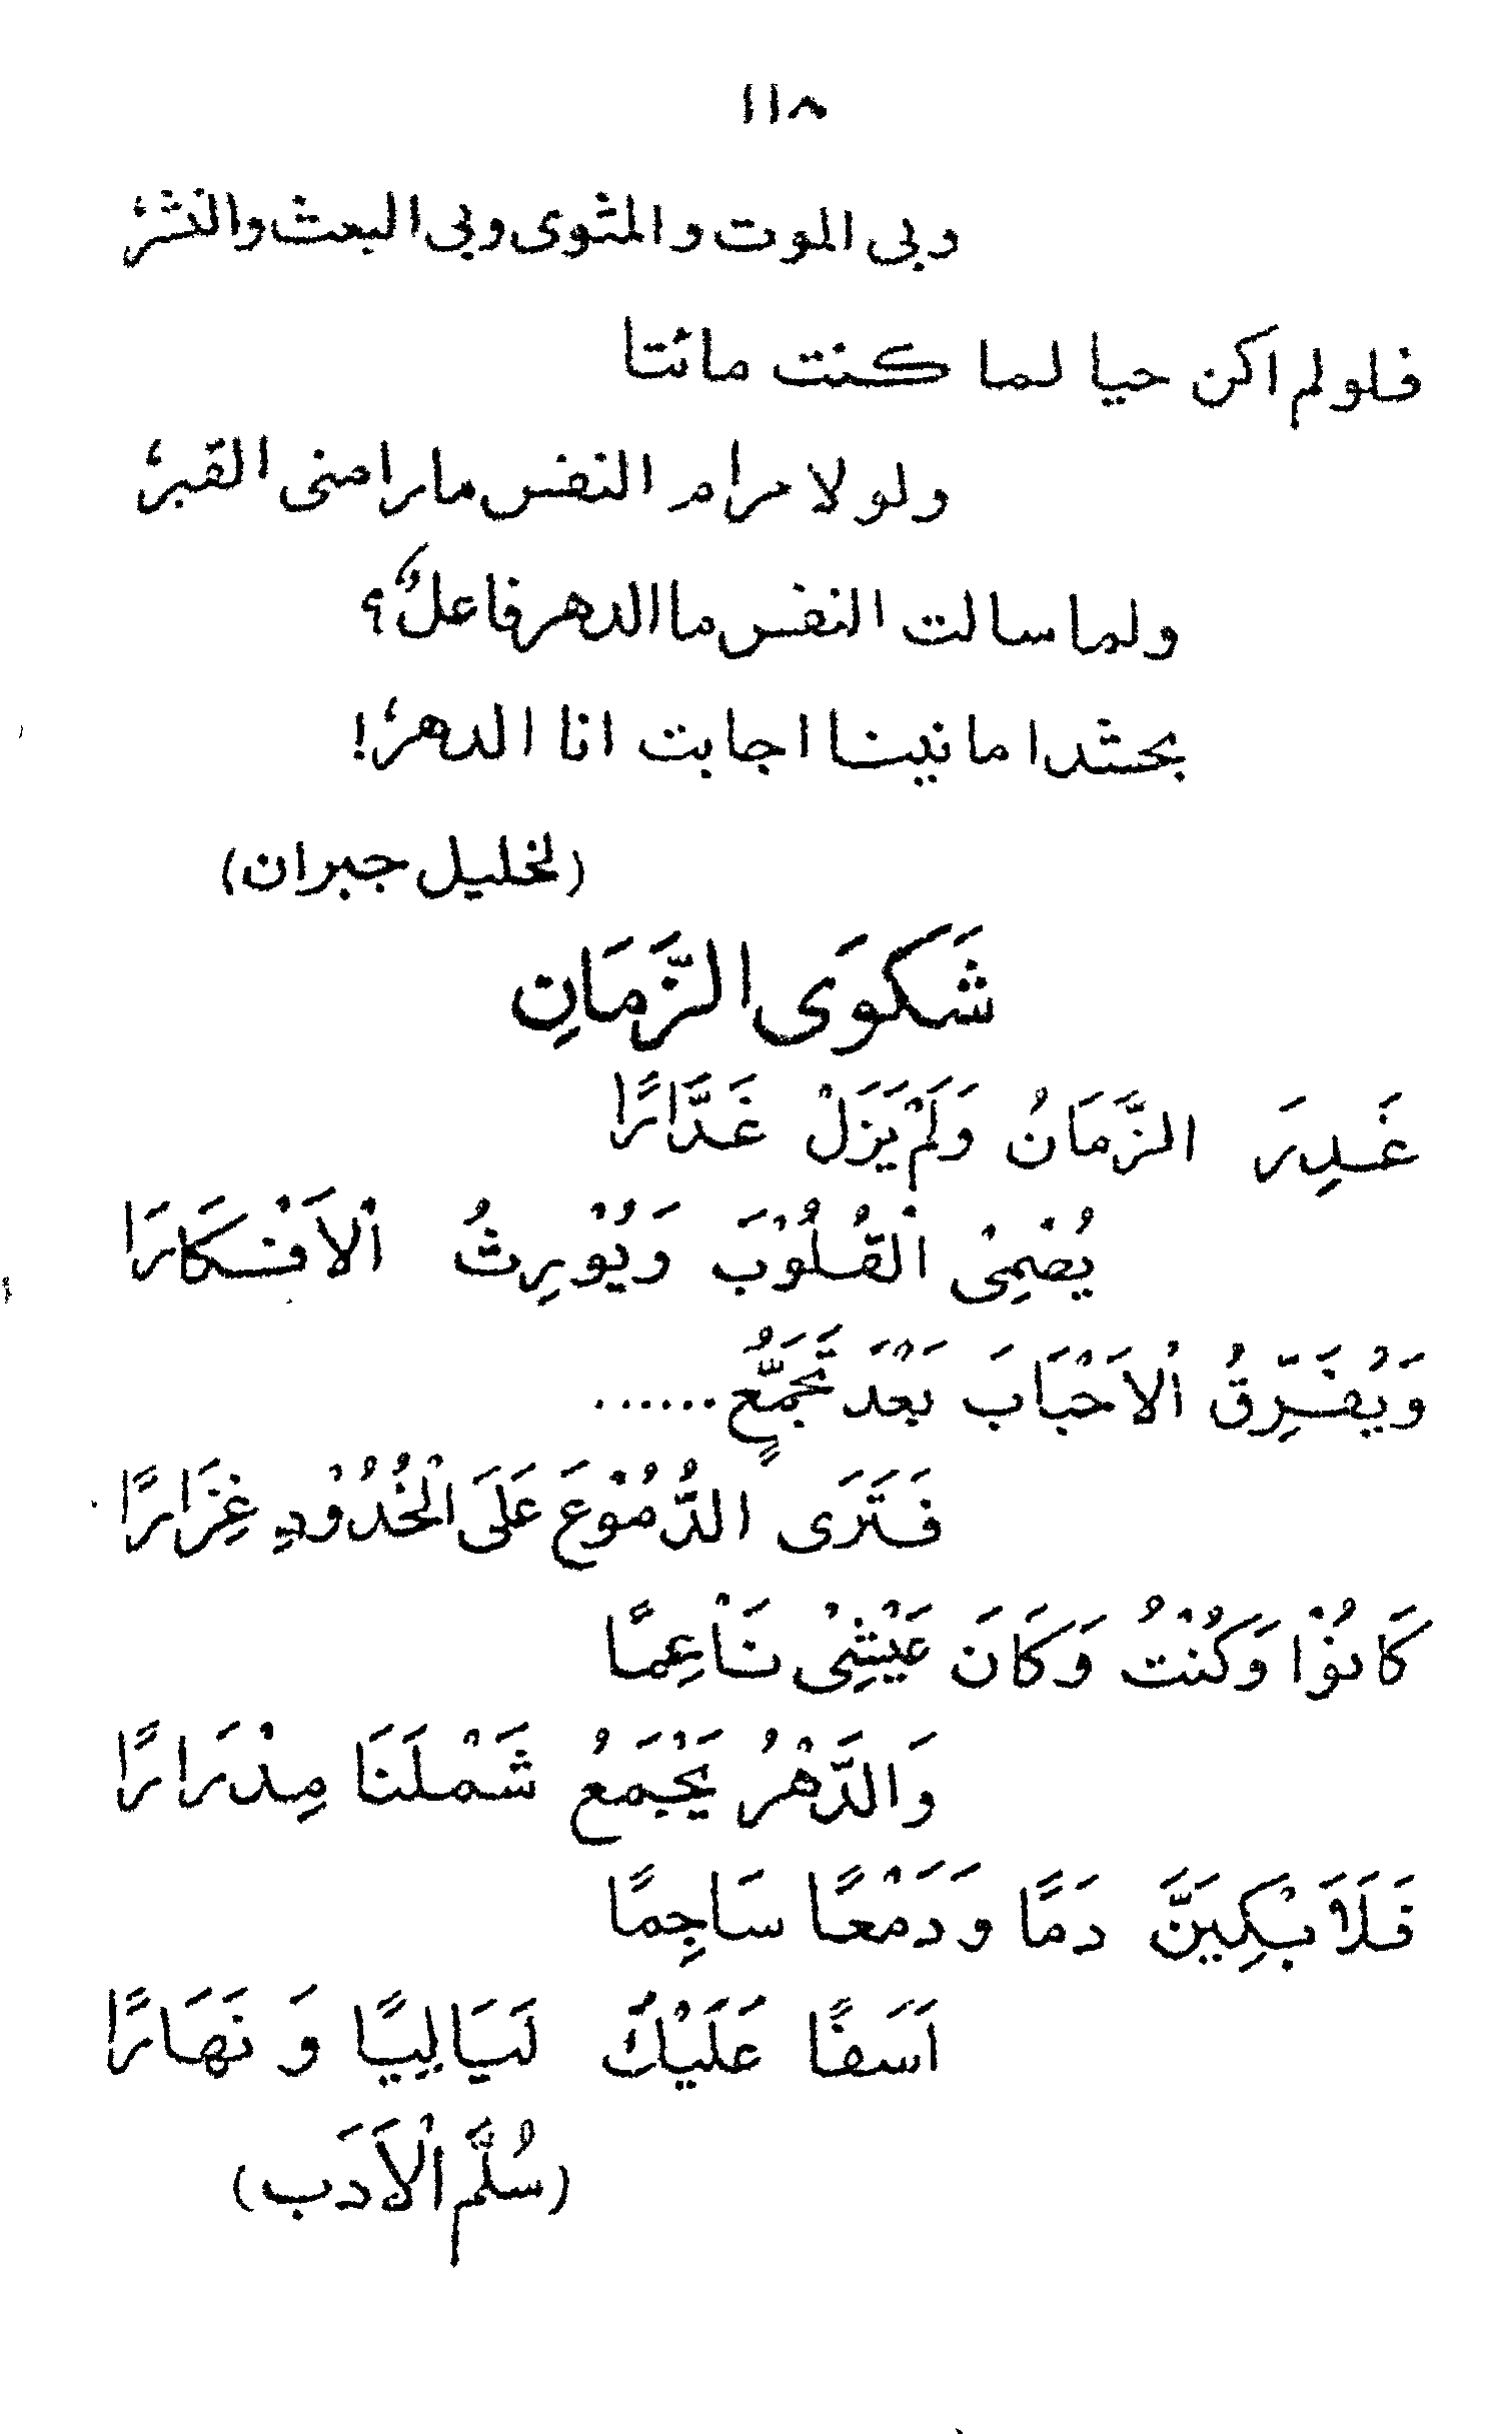 ١١٨
وبى الموت والمثوى وبى البعث والنشرُ
فلولم اكن حيا لما كنت مائتا
ولولا مرام النفس مارامنى القبرُ
ولما سالت النفس ماالدهر فاعلٌ؟
بحشد امانينا اجابت انا الدهرُ!
(لخليل جبران)
شَكوَى الزَّمَانِ
غَدِرَ الزَّمَانُ وَلَمْ يَزَلْ غَدَّارًا
يُصْمِىْ الْقُلُوْبَ وَيُوْرِثُ الْاَفْكَارَا
وَيُفَرِّقُ الْاَحْبَابَ بَعْدَ تَجَمُّعٍ......
فَتَرَى الدُّمُوْعَ عَلَى الْخُدُوْدِ غِزَارًا
كَانُوْا وَكُنْتُ وَكَانَ عَيْشِىْ نَاعِمًا
وَالدَّهْرُ يَجْمَعُ شَمْلَنَا مِدْرَارًا
فَلَاَبْكِيَنَّ دَمًا وَدَمْعًا سَاجِمًا
اَسَفًا عَلَيْكَ لَيَالِيًا وَ نَهَارًا
(سُلَّم الْاَدَب)